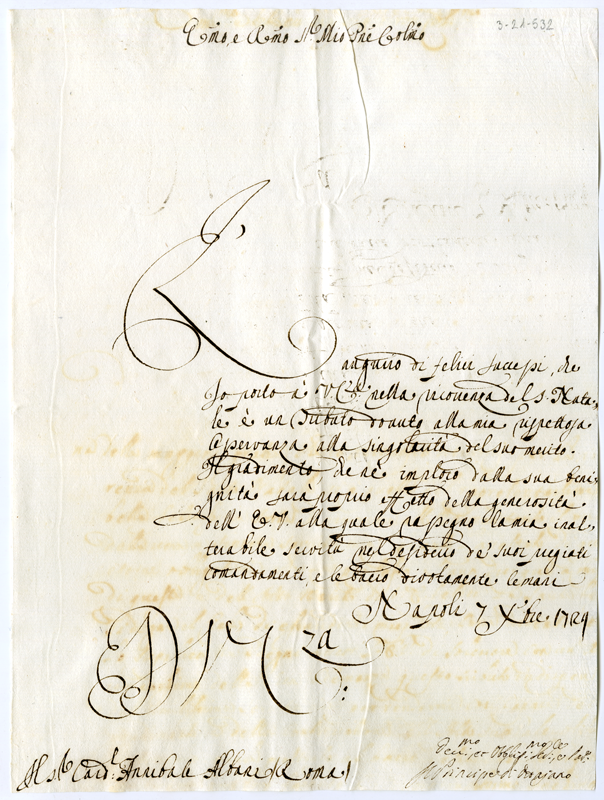 3-21-532
Emo, e Rmo Sr Mio Pne Colmo
L'augurio di felici successi, che
Io porto à V. Em: nella ricorrenza del S. Nata-
le è un tributo douuto alla mia rispettosa
osseruanza alla singolarità del suo merito.
Il gradimento, che ne imploro dalla sua beni-
gnità sarà proprio effetto della generosità
dell' E.V. alla quale rassegno la mia inal-
terabile seruitù nel desiderio de' suoi pregiati
comandamenti, e le bacio diuotamente le mani
Napoli 7 Xbre. 1724
Al Sr Card.l Annibale Albani Roma
Il Principe di